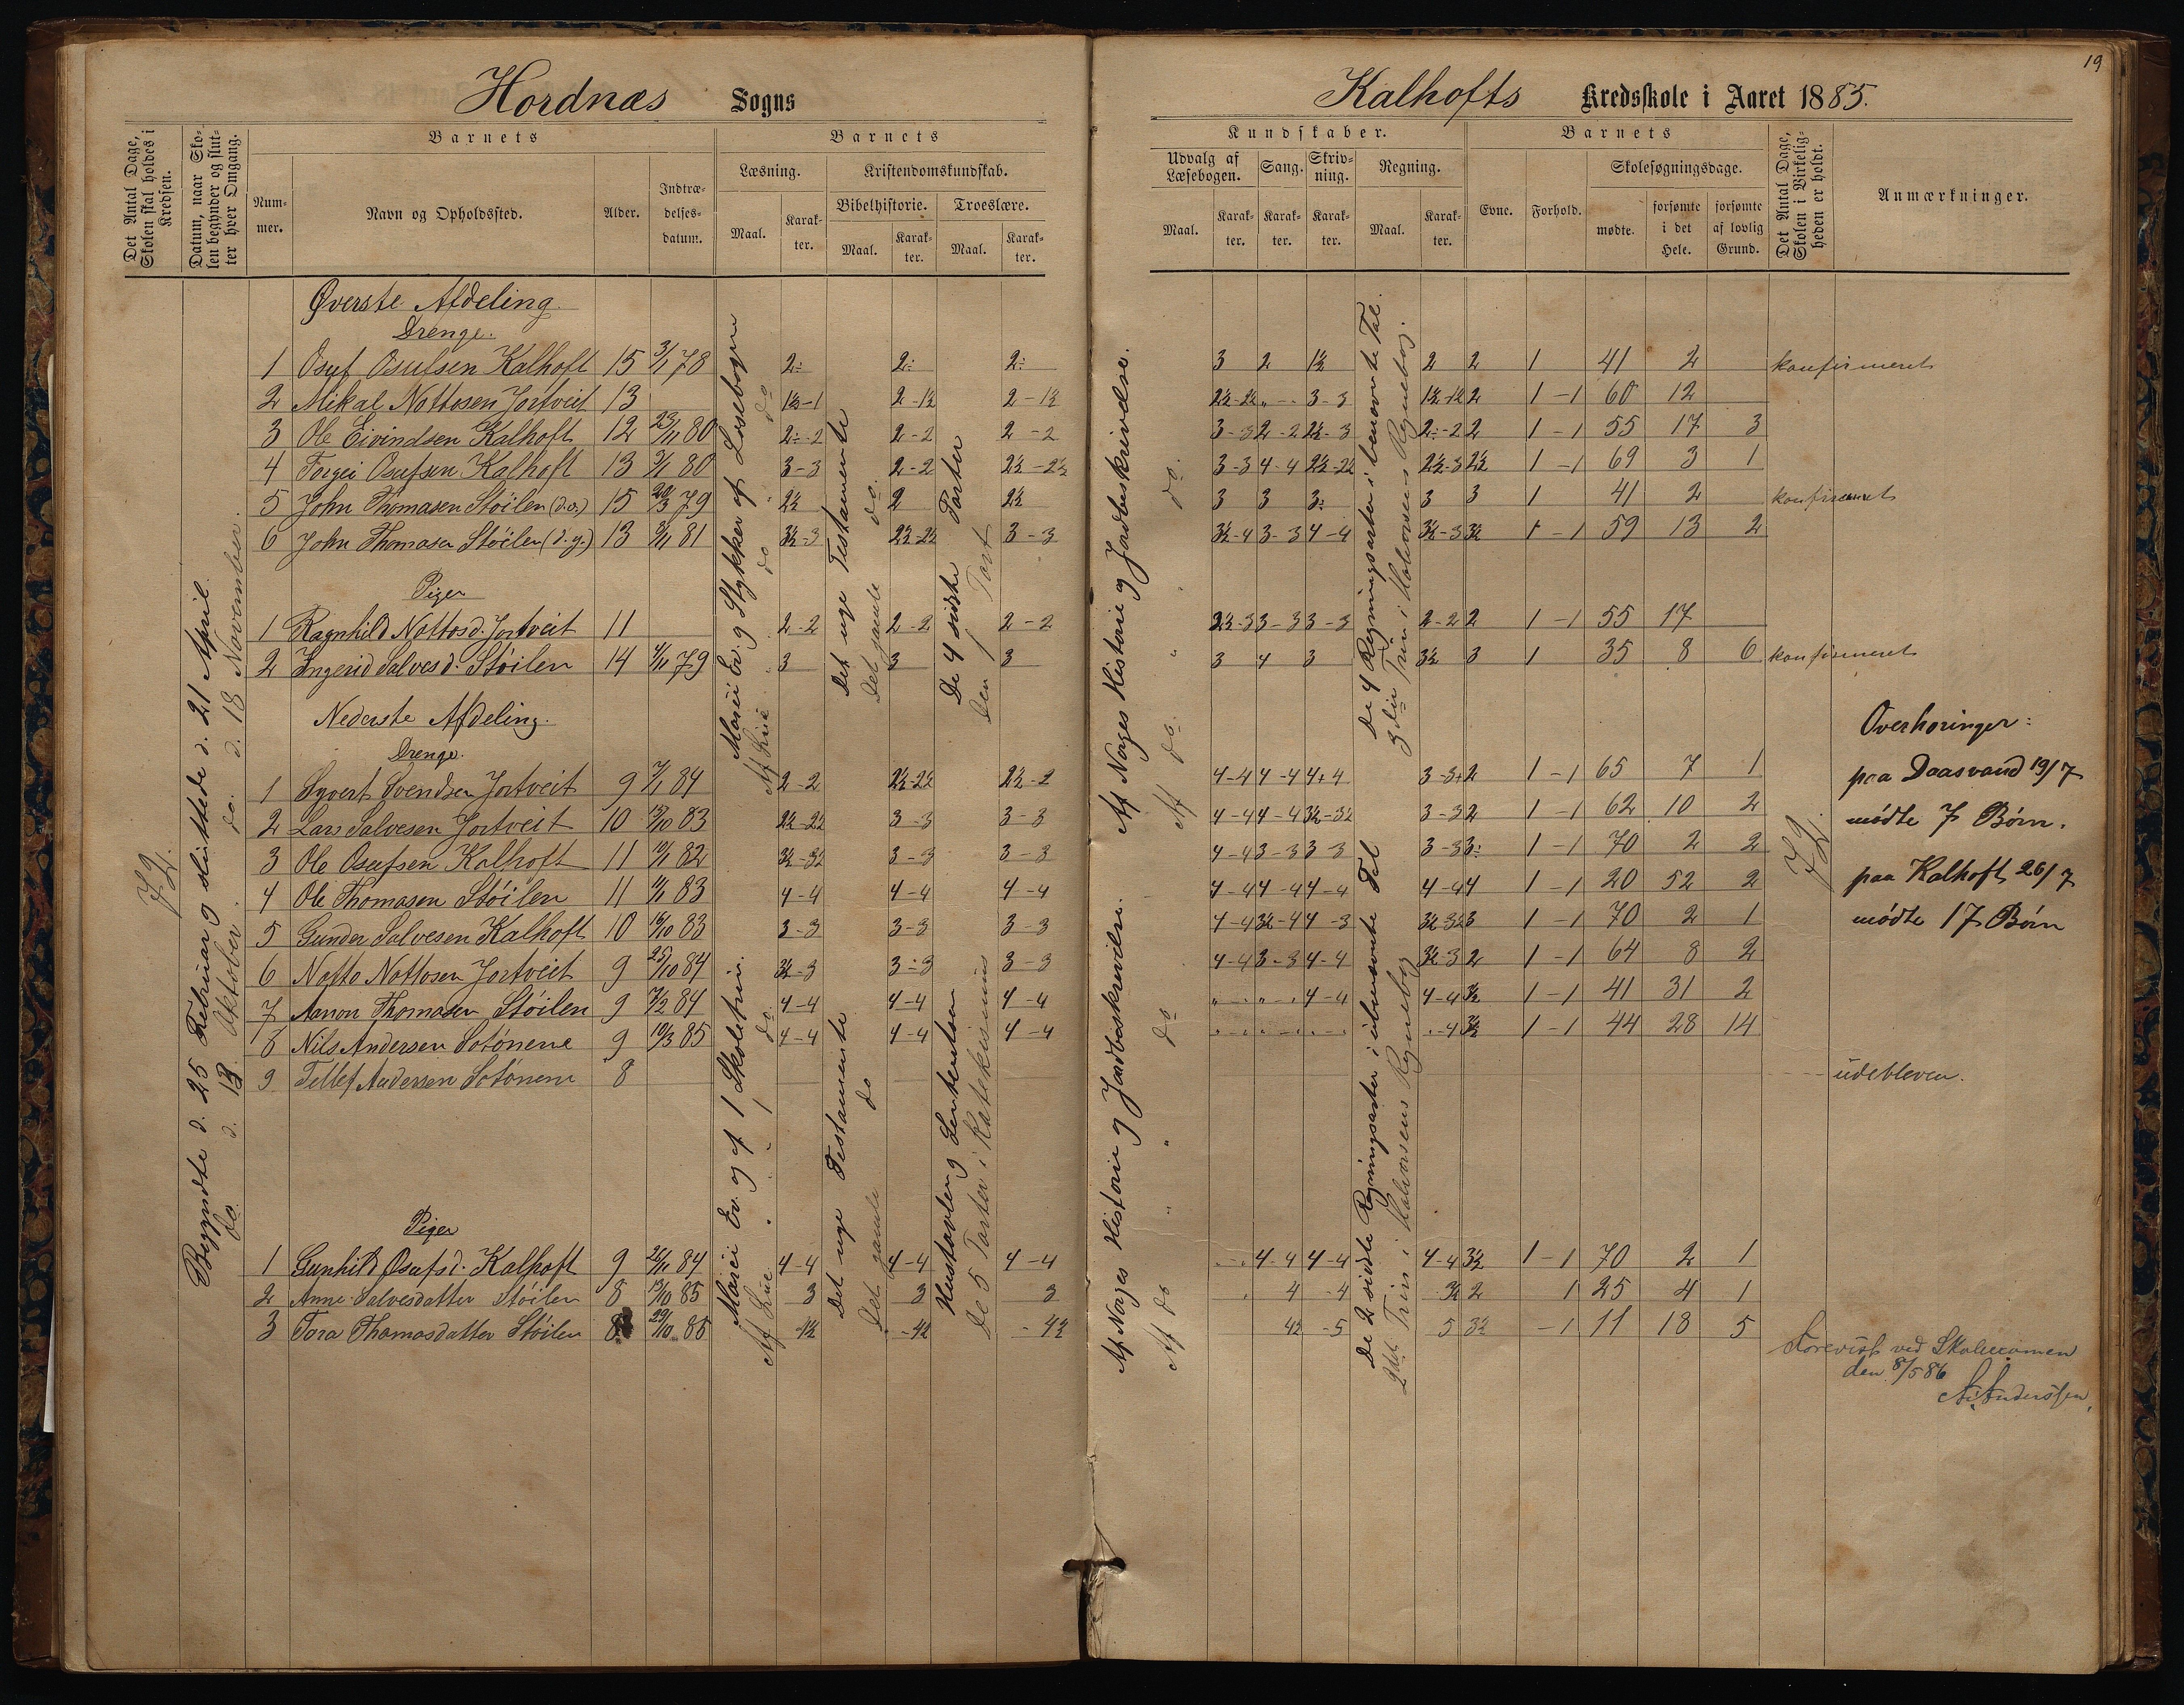 19
Hordnæs Sogns
Kalhofts Kredsskole i Aaret 1885.
Det Antal Dage, Skolen skal holdes i Kredsen.
Datum, naar Skolen begynder og slutter hver Omgang.
Barnets
Nummer.
Navn og Opholdssted.
Alder.
Indtrædelsesdatum.
Barnets
Læsning.
Maal.
Karakter.
Kristendomskundskab.
Bibelhistorie.
Maal.
Karakter.
Troeslære.
Maal.
Karakter.
Kundskaber.
Udvalg af Læsebogen.
Maal.
Karakter.
Sang.
Karakter.
Skrivning.
Karakter.
Regning.
Maal.
Karakter.
Barnets
Evne.
Forhold.
Skolesøgningsdage.
mødte.
forsømte i det Hele.
forsømte af lovlig Grund.
Det Antal Dage, Skolen i Virkeligheden er holdt.
Anmærkninger.
72.
Begyndte d. 25 Februar og sluttede d. 21 April.
do. d. 13 Oktober. do. d. 18 November.
Øverste Afdeling.
Drenge.
1 Osuf Osufsen Kalhoft 15 3/1 78 2÷ 2÷ 2÷ 3 2 1½ 2 2 1 41 2 konfirmeret
2 Mikal Nottosen Jortveit 13 1½-1 2-1½ 2-1½ 2½-2½ „ - 3-3 1½-1½ 2 1-1 60 12
3 Ole Eivindsen Kalhoft 12 23/11 80 2÷-2 2-2 2-2 3-3 2-2 2½-3 2÷-2 2 1-1 55 17 3
4 Torgei Osufsen Kalhoft 13 3/1 80 3-3 2-2 2½-2½ 3-3 4-4 2½-2½ 2½-3 2½ 1-1 69 3 1
5 John Thomasen Støilen (d.æ.) 15 20/3 79 2½ 2 2½ 3 3 3÷ 3 3 1 41 2 konfirmeret
6 John Thomasen Støilen (d.y.) 13 81 3½-3 2½-2½ 3-3 3½-4 3-3 4-4 3½-3 3½ 1-1 59 13 2
Piger
1 Ragnhild Nottosd. Jortveit 11 2-2 2-2 2-2 2½-3 3-3 3-3 2-2 2 1-1 55 17
2 Ingerid Salvesd. Støilen 14 4/11 79 3 3 3 3 4 3 3½ 3 1 35 8 6 konfirmeret
Marci Ev. og Stykker af Læsebogen
Af Luc. „ do do
Det nye Testamente
Det gamle do.
De 4 sidste Parter
Den 1 Part
Af Norges Historie og Jordbeskrivelse.
Af do. „ do.
De 4 Regningsarter i benævnte Tal.
3die Trin i Halvorsens Regnebog.
Nederste Afdeling.
Drenge.
1 Syvert Svendsen Jortveit 9 7/1 84 2-2 2½-2½ 2½-2 4-4 4-4 4+4 3-3+ 2 1-1 65 7 1
2 Lars Salvesen Jortveit 10 15/10 83 2½-2½ 3-3 3-3 4-4 4-4 3½-3½ 3-3 2 1-1 62 10 2
3 Ole Osufsen Kalhoft 11 19/1 82 3½-3½ 3-3 3-3 4-4 3-3 3-3 3-3 3÷ 1-1 70 2 2
4 Ole Thomasen Støilen 11 83 4-4 4-4 4-4 4-4 4-4 4-4 4-4 4 1-1 20 52 2
5 Gunder Salvesen Kalhoft 10 16/10 83 3-3 3-3 3-3 4-4 3½-4 4-3 3½-3½ 3 1-1 70 2 1
6 Notto Nottosen Jortveit 9 25/10 84 3½-3 3-3 3-3 4-4 3-3 4-4 3½-3 2 1-1 64 8 2
7 Aanon Thomasen Støilen 9 7/2 84 4-4 4-4 4-4 „ - „ „ - „ 4-4 4-4 3½ 1-1 41 31 2
8 Nils Andersen Sotønene 9 19/3 85 4-4 4-4 4-4 „ - „ „ - „ „ - „ „-4 3½ 1-1 44 28 14
9 Tellef Andersen Sotønene 8 udebleven.
Piger
1 Gunhild Osufsd. Kalhoft 9 26/11 84 4-4 4-4 4-4 „ - „ 4-4 4-4 4-4 3½ 1-1 70 2 1
2 Anne Salvesdatter Støilen 8 13/10 85 3 3 3 „ 4 -4 3½ 2 1 25 4 1
3 Tora Thomasdatter Støilen 8 29/10 85 -4½ -4½ -4½ 4½ -5 5 3½ -1 11 18 5
Marci Ev. og af 1 Skoletrin.
Af Luc. „ „ „ 1 do.
Det nye Testamente
Det gamle do
Hustavlen og Sentensen
De 5 Parter i Katekismus
Af Norges Historie og Jordbeskrivelse.
Af do „ „ do
De 2 sidste Regningsarter i ubenævnte Tal
2det Trin i Halvorsens Regnebog
72.
Overhøringer:
paa Daasvand 19/7
mødte 7 Børn.
paa Kalhoft 26/7
mødte 17 Børn
Forevist ved Skoleexamen
den 8/5 86
N. Anderssen.